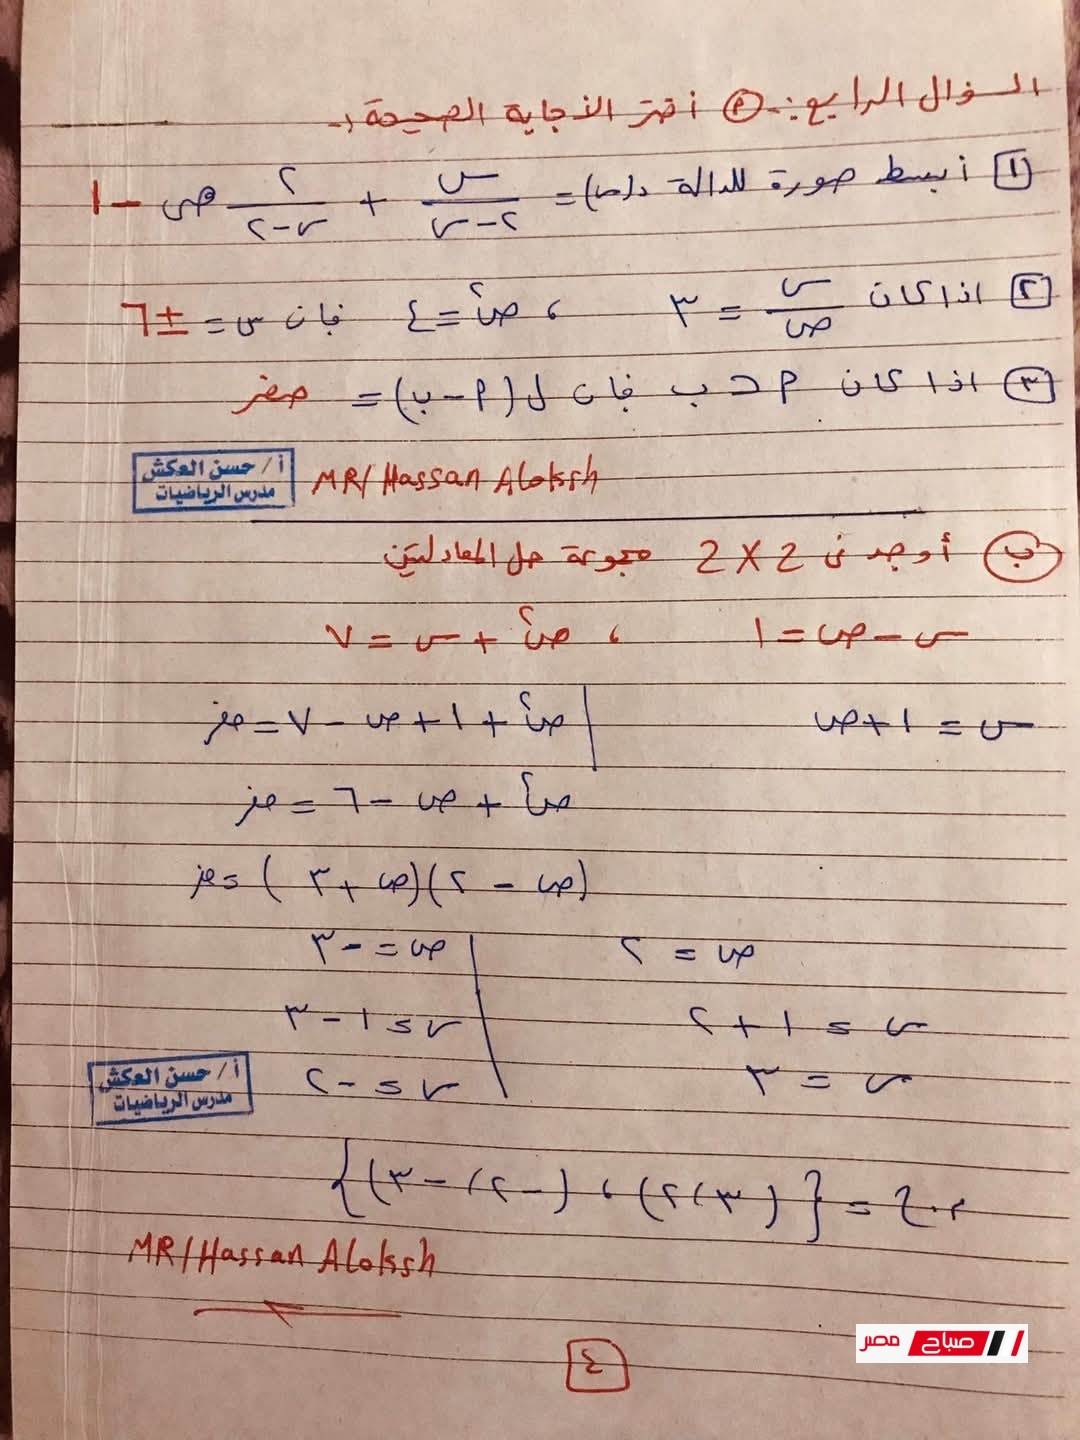 السؤال الرابع:- (أ) أختر الأجابة الصحيحة:-
[١] أبسط صورة للدالة د(س) = س/(٢-س) + ٢/(س-٢) هى -١
[٢] اذا كان س/ص = ٣ ، ص٢ = ٤ فإن س = ±٦
[٣] اذا كان أ ⊂ ب فإن ل(أ - ب) = صفر
أ/ حسن العكش
مدرس الرياضيات
MR/Hassan Aloksh
(ب) أوجد فى ح × ح مجموعة حل المعادلتين
س - ص = ١ ، ص٢ + س = ٧
س = ١ + ص | ص٢ + ١ + ص - ٧ = صفر
ص٢ + ص - ٦ = صفر
(ص - ٢)(ص + ٣) = صفر
ص = ٢ | ص = -٣
س = ١ + ٢ | س = ١ - ٣
س = ٣ | س = -٢
أ/ حسن العكش
مدرس الرياضيات
م.ح = {(٣،٢) ، (-٢،-٣)}
MR/Hassan Aloksh
صباح مصر
٤